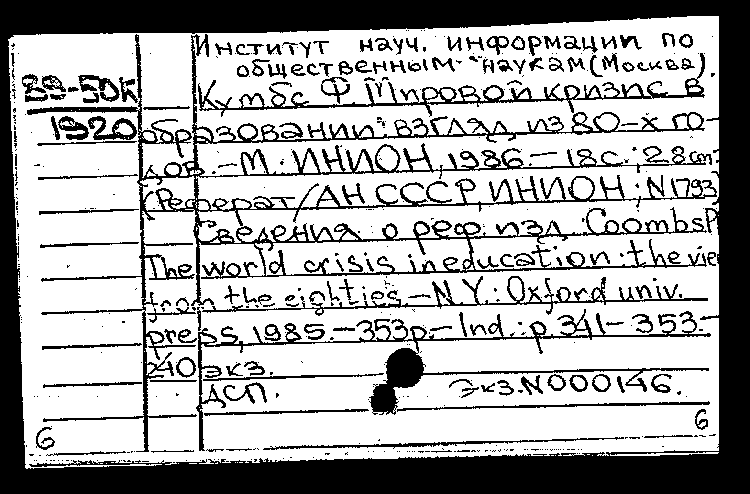 Институт науч. информации по
общественным наукам (Москва).
89-50К Кумбс Ф. Мировой кризис в
1920 образовании: взгляд из 80-х го-
дов. – М.: ИНИОН, 1986. – 18 с.; 28 см.
(Реферат / АН СССР, ИНИОН; N 1793)
Сведения о реф. изд. Coombs P
The world crisis in education: the vie
from the eighties. – N.Y.: Oxford univ.
press, 1985. – 353 p. – Ind.: p. 341–353. –
240 экз.
ДСП. Экз. N 000146.
6 6